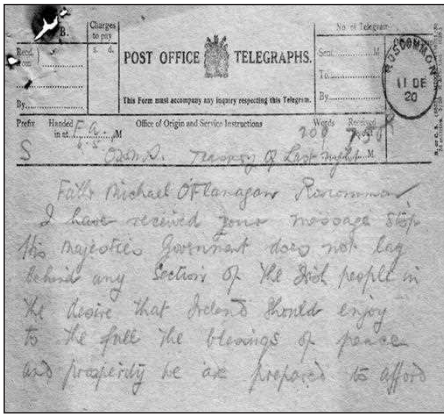 B.
Charges
to pay
s. d.
POST OFFICE TELEGRAPHS.
This Form must accompany any inquiry respecting this Telegram.
No. of Telegram
Sent M
To
By
By
ROSCOMMON
11 DE
20
Prefix Handed in at M Office of Origin and Service Instructions Words Received
S Treasury of Last night M
Father Michael O'Flanagan Roscommon
I have received your message stop
His majesties Government does not lag
behind any Section of the Irish people in
the desire that Ireland should enjoy
to the full the blessings of peace
and prosperity we are prepared to afford